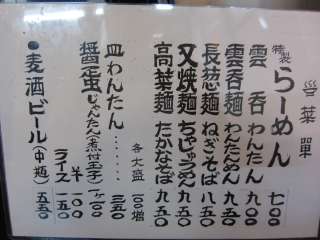 営菜單
特製らーめん 七〇〇
雲呑 わんたん 七〇〇
雲呑麺 わんたんめん 九〇〇
長葱麺 ねぎそば 八五〇
叉焼麺 ちゃしゅうめん 九五〇
高菜麺 たかなそば 九五〇
各大盛 一〇〇増
皿わんたん………… 三五〇
醬蛋 じゃんたん(煮付玉子) 一ケ 一〇〇
ライス 一〇〇
半 七〇
●麦酒 ビール(中瓶) 五五〇